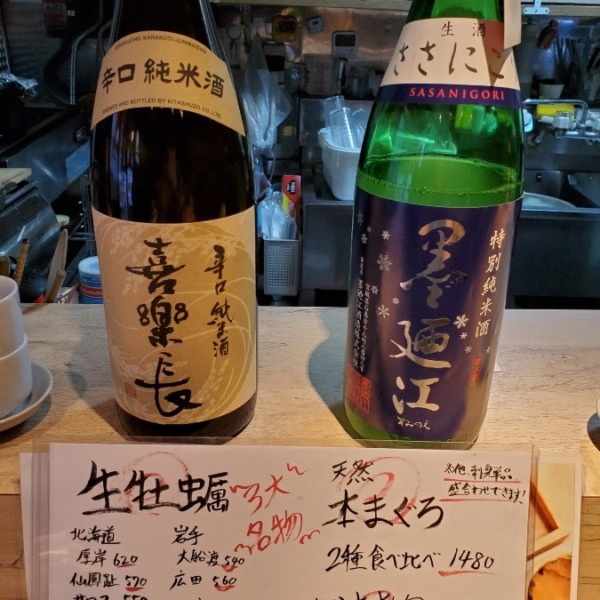 KIRAKUCHO KARAKUTI-JUNMAISHU
辛口 純米酒
BREWED AND BOTTLED BY KITASHUZO CO.,LTD.
喜樂長
辛口 純米酒
生酒
ささにご
SASANIGORI
特別純米酒
墨廼江
すみのえ
墨廼江酒造株式会社
生牡蠣
"3大"
名物
北海道
厚岸 620
仙鳳趾 570
岩手
大船渡 540
広田 560
天然
本まぐろ
2種食べ比べ 1480
その他、刺身単品、
盛合わせできます!